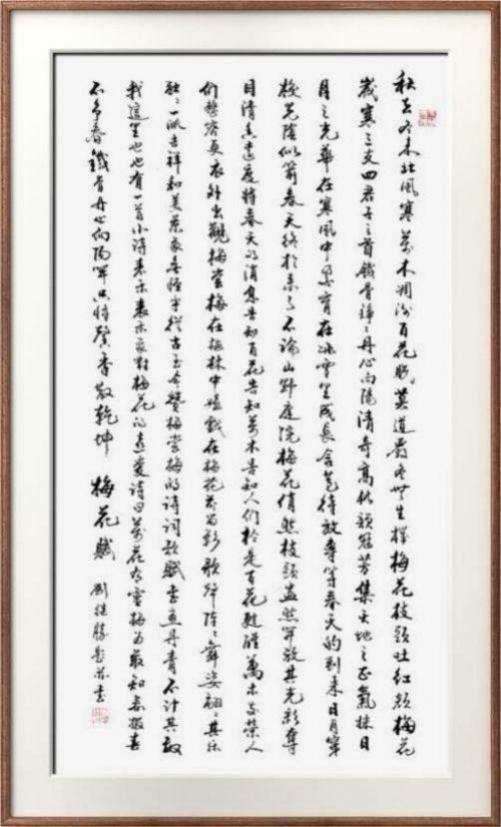 秋去冬来北风寒万木凋汾百花眠莫道严冬无生机梅花枝头吐红颜梅花
岁寒三友四君子之首铁骨铮铮丹心向阳清奇高俊领冠芳集天地之正气抹日
月之光华在寒风中孕育在冰雪里成长含苞待放等等春天的到来日月穿
梭光阴似箭春天终於来了不论山野庭院梅花俏然枝头盎然开放其光彩夺
目清香远度将春天的消息告知百花告知万木告知人们於是百花甦醒万木亦荣人
们整容更衣外出观梅赏梅在梅林中嬉戏在梅花前留影歌声阵阵舞姿翩翩其乐
融融一派吉祥和美景象
从古至今赞梅赏梅的诗词歌赋书画丹青不计其数
我这里也有一首小诗表示表示我对梅花的喜爱诗曰万花有雪梅为最知春报喜
不争春铁骨丹心向阳开只将馨香散乾坤 梅花赋 刘继胜 书